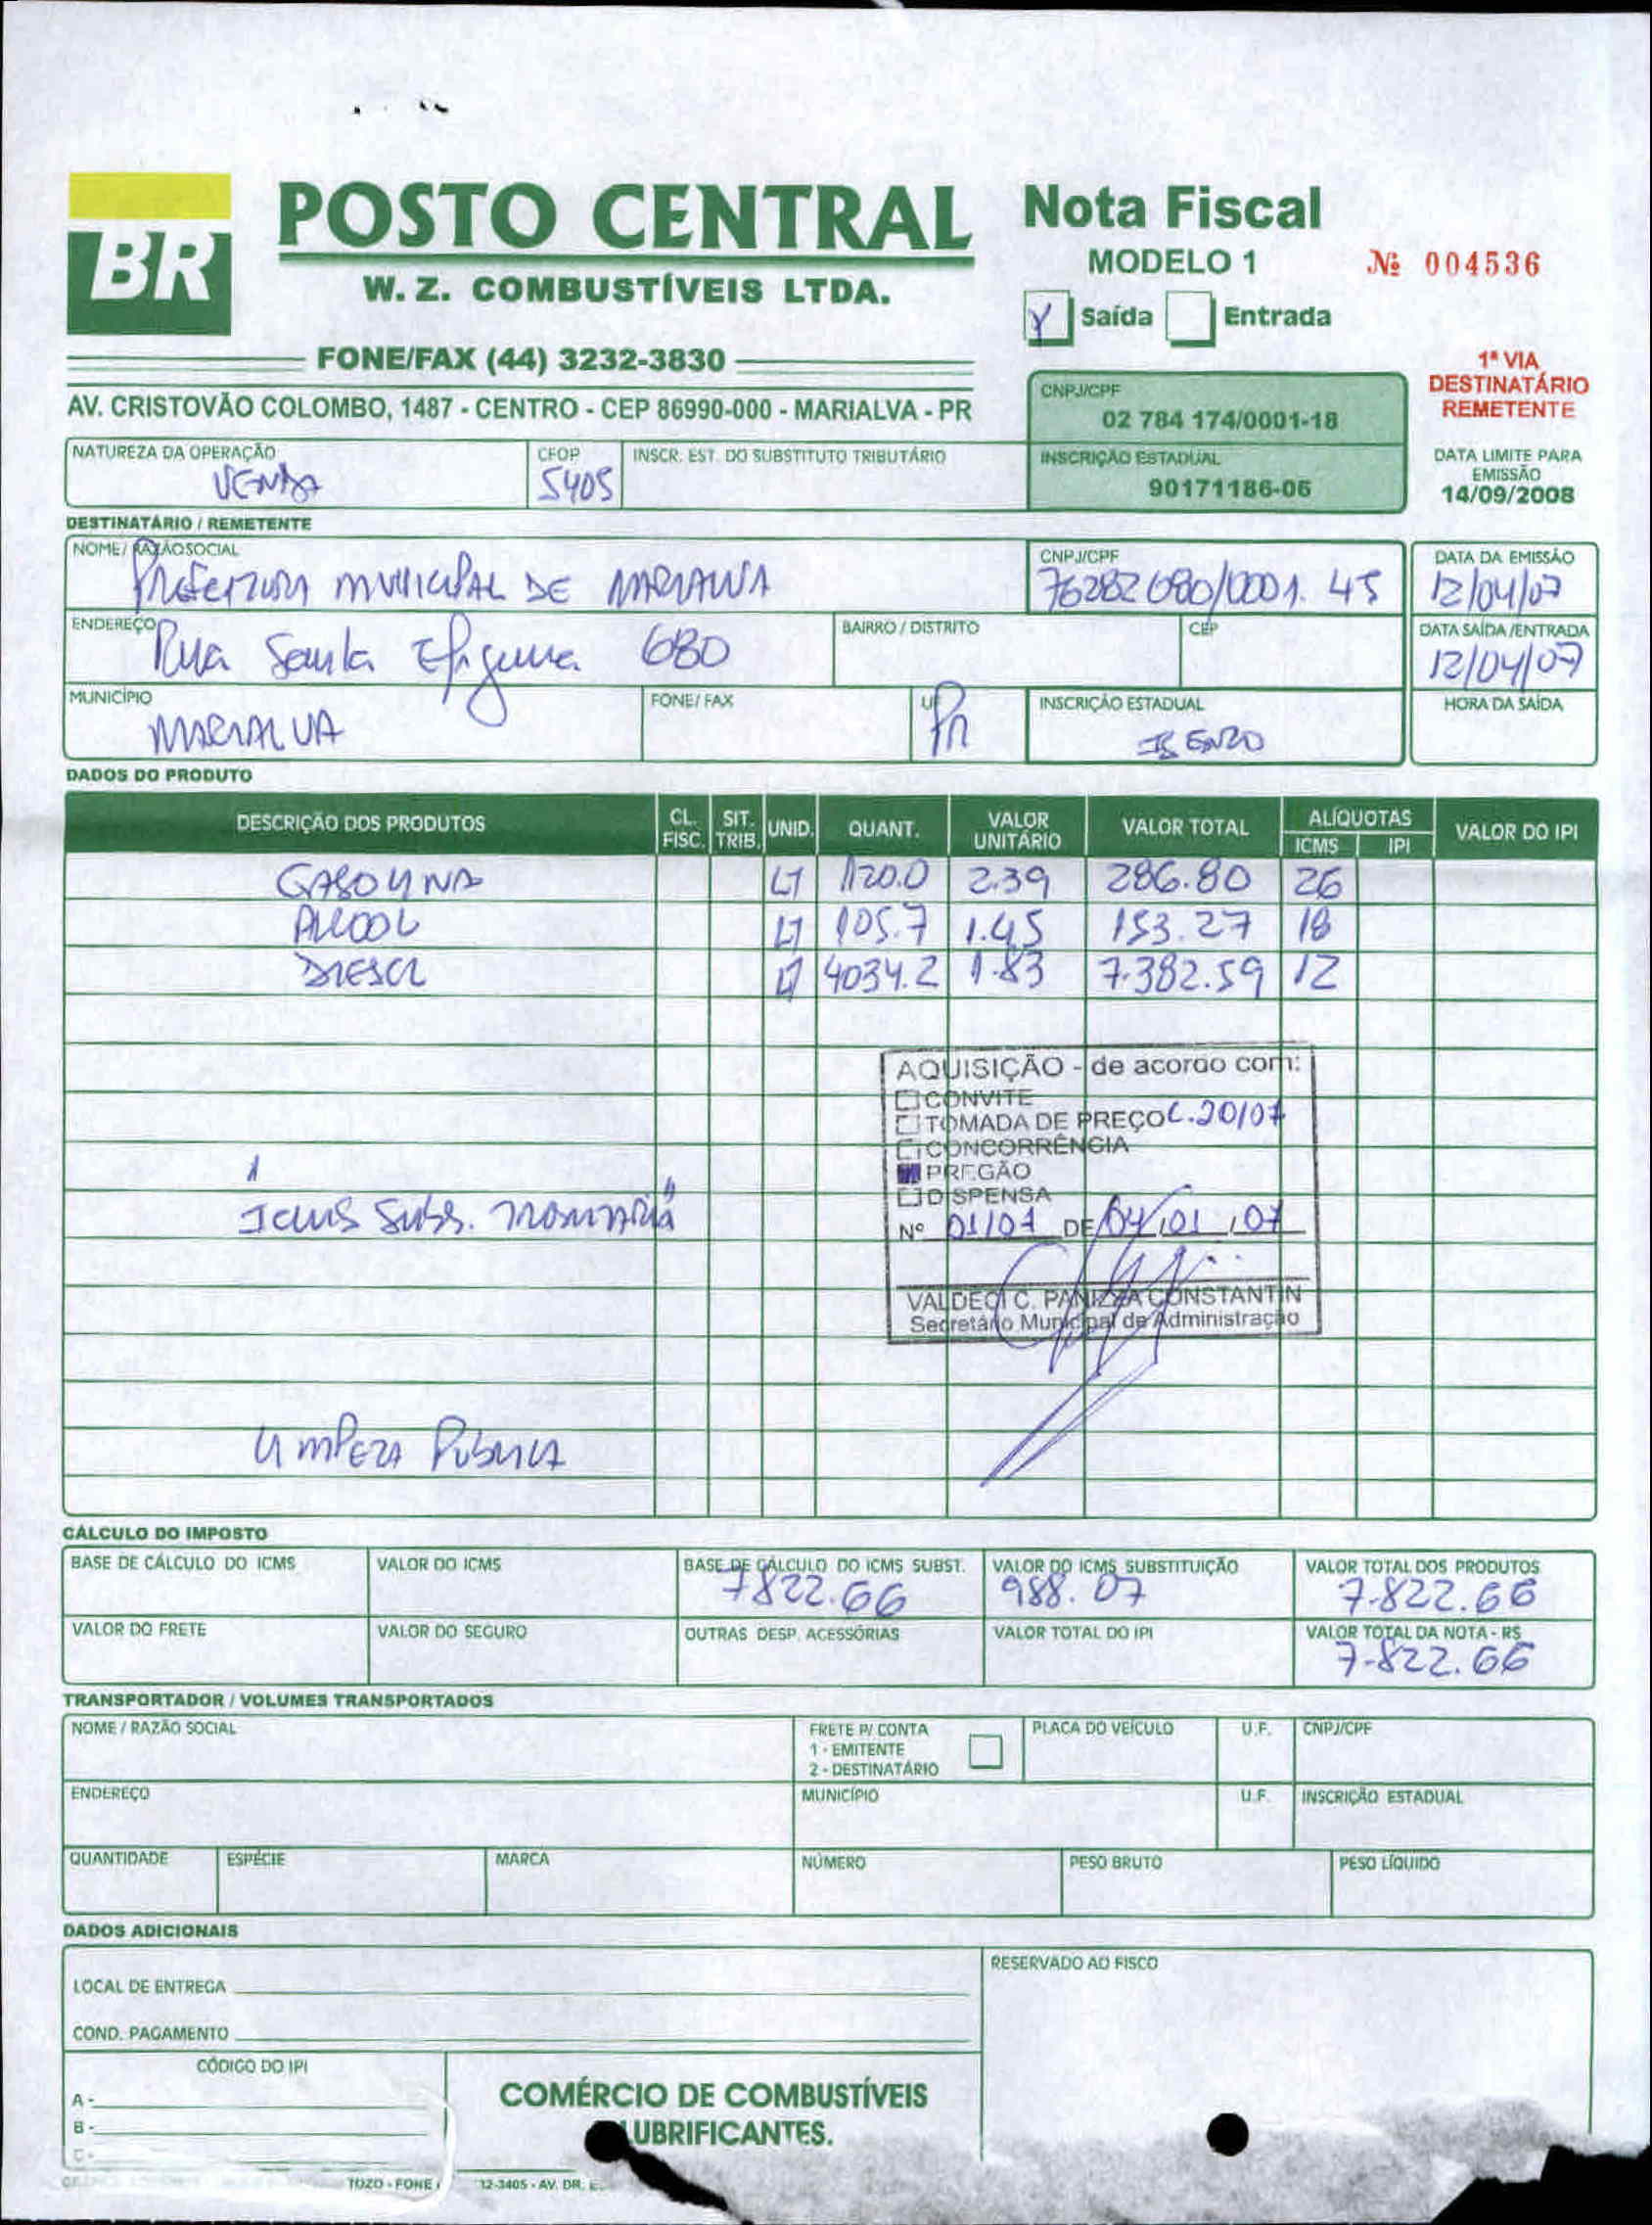 BR
POSTO CENTRAL
W. Z. COMBUSTÍVEIS LTDA.
FONE/FAX (44) 3232-3830
AV. CRISTOVÃO COLOMBO, 1487 - CENTRO - CEP 86990-000 - MARIALVA - PR
Nota Fiscal
MODELO 1
Nº 004536
X Saída Entrada
1ª VIA
DESTINATÁRIO
REMETENTE
CNPJ/CPF
02 784 174/0001-18
INSCRIÇÃO ESTADUAL
90171186-06
DATA LIMITE PARA
EMISSÃO
14/09/2008
NATUREZA DA OPERAÇÃO CFOP INSCR. EST. DO SUBSTITUTO TRIBUTÁRIO
VENDA 5405
DESTINATÁRIO / REMETENTE
NOME / RAZÃO SOCIAL CNPJ/CPF DATA DA EMISSÃO
PREFEITURA MUNICIPAL DE MARIALVA 76282680/0001.45 12/04/07
ENDEREÇO BAIRRO / DISTRITO CEP DATA SAÍDA/ENTRADA
Rua Santa Efigenia 680 12/04/07
MUNICÍPIO FONE/ FAX UF INSCRIÇÃO ESTADUAL HORA DA SAÍDA
MARIALVA PR ISENTO
DADOS DO PRODUTO
DESCRIÇÃO DOS PRODUTOS CL. FISC. SIT. TRIB. UNID. QUANT. VALOR UNITÁRIO VALOR TOTAL ALÍQUOTAS ICMS IPI VALOR DO IPI
GASOLINA LT 120.0 2.39 286.80 26
ALCOOL LT 105.7 1.45 153.27 18
DIESEL LT 4034.2 1.83 7.382.59 12
AQUISIÇÃO - de acordo com:
CONVITE
TOMADA DE PREÇO C.20/07
CONCORRÊNCIA
PREGÃO
DISPENSA
Nº 01/07 DE 04/01/07
VALDECI C. PANIZZA CONSTANTIN
Secretário Municipal de Administração
ICMS Subs. TRIBUTÁRIA
LIMPEZA PUBLICA
CÁLCULO DO IMPOSTO
BASE DE CÁLCULO DO ICMS VALOR DO ICMS BASE DE CÁLCULO DO ICMS SUBST. VALOR DO ICMS SUBSTITUIÇÃO VALOR TOTAL DOS PRODUTOS
7822.66 988.07 7.822.66
VALOR DO FRETE VALOR DO SEGURO OUTRAS DESP. ACESSÓRIAS VALOR TOTAL DO IPI VALOR TOTAL DA NOTA - R$
7.822.66
TRANSPORTADOR / VOLUMES TRANSPORTADOS
NOME / RAZÃO SOCIAL FRETE P/ CONTA PLACA DO VEÍCULO U.F. CNPJ/CPF
1 - EMITENTE
2 - DESTINATÁRIO
ENDEREÇO MUNICÍPIO U.F. INSCRIÇÃO ESTADUAL
QUANTIDADE ESPÉCIE MARCA NÚMERO PESO BRUTO PESO LÍQUIDO
DADOS ADICIONAIS
RESERVADO AO FISCO
LOCAL DE ENTREGA
COND. PAGAMENTO
CÓDIGO DO IPI
A -
B -
C -
COMÉRCIO DE COMBUSTÍVEIS
LUBRIFICANTES.
TOZO - FONE 12-3405 - AV. DR.